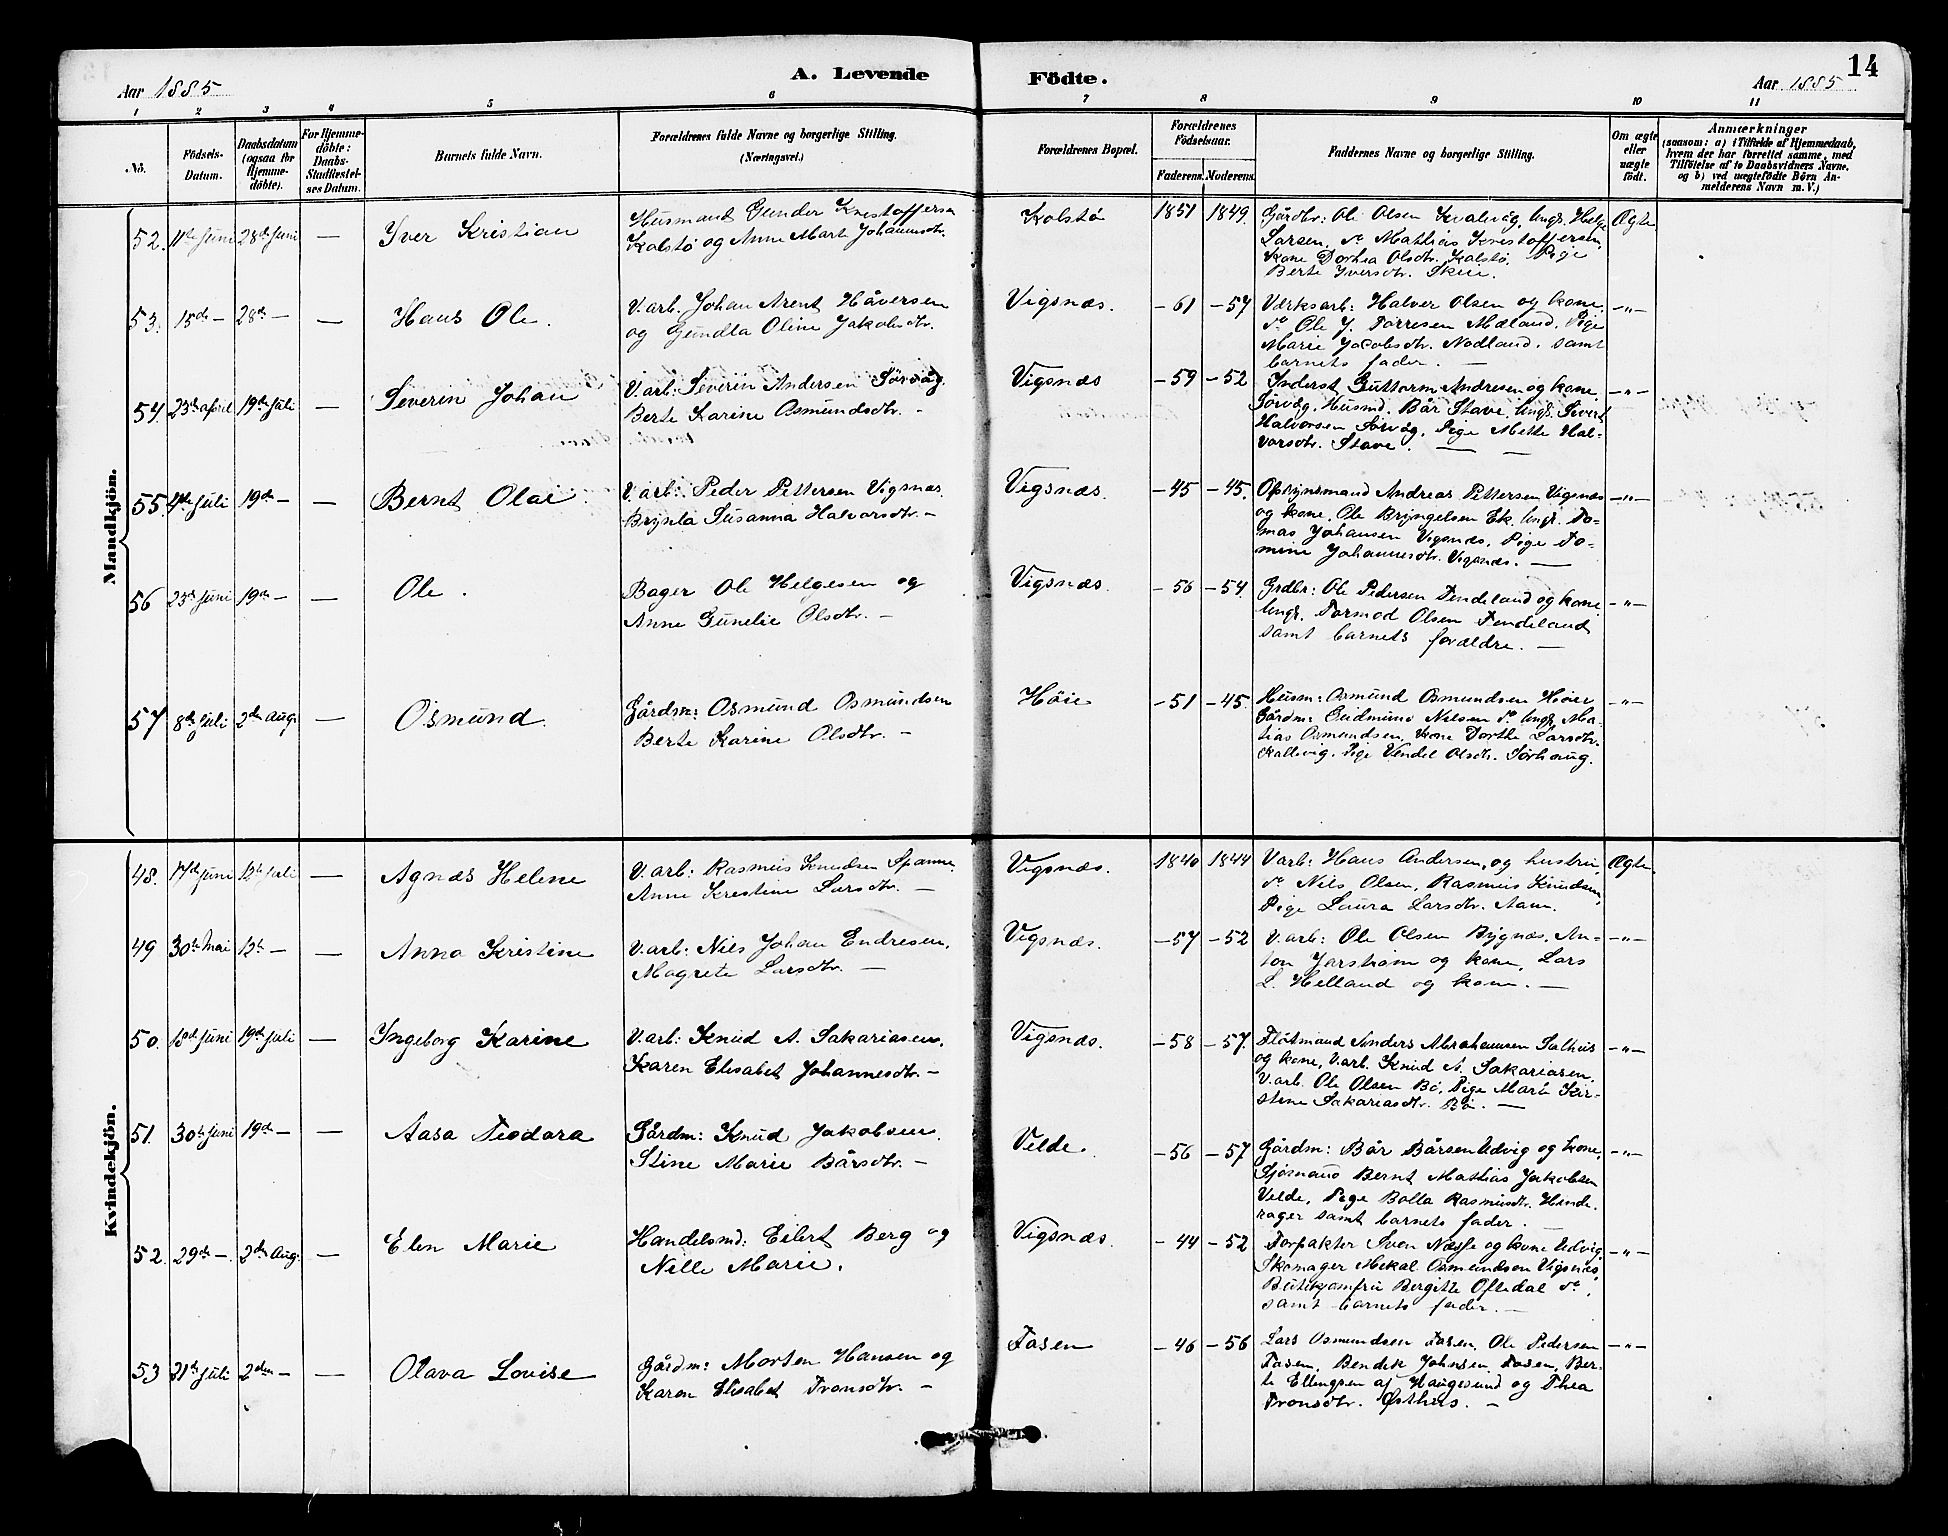 14
Aar 1885
A. Levende Födte.
Aar 1885
1 2 3 4 5 6 7 8 9 10 11
No.
Födsels-Datum.
Daabsdatum (ogsaa for Hjemme-döbte).
For Hjemme-döbte: Daabs-Stadfæstel-ses Datum.
Barnets fulde Navn.
Forældrenes fulde Navne og borgerlige Stilling. (Næringsvei.)
Forældrenes Bopæl.
Forældrenes Födselsaar.
Faderens. Moderens.
Faddernes Navne og borgerlige Stilling.
Om ægte eller uægte födt.
Anmærkninger
(saasom: a) i Tilfælde af Hjemmedaab, hvem der har forrettet samme, med Tilföielse af to Daabsvidners Navne, og b) ved uægtefödte Börn An-melderens Navn m. V.)
Mandkjön.
52. 11te Juni 28de Juni — Iver Kristian
Husmand Gunder Kristoffersen
Kolstø og Anne Marte Johannesdtr.
Kolstø 1851 1849.
Gårdbr: Ole Olsen Kvalevåg, Ungk. Helge
Larsen, do Mathias Kristoffersen,
Kone Dorthea Olsdtr. Kolstø, Pige
Berte Iversdtr. Skeie.
Ægte
53. 15de — 28de — — Hans Ole.
V.arb. Johan Arent Håversen
og Gundla Oline Jakobsdtr.
Vigsnæs. — 61 — 57
Værksarb: Halver Olsen og kone,
do Ole J. Torresen Mæland. Pige
Marie Jacobsdtr. Nodland. samt
barnets fader. —
—"—
54. 23de april 19de Juli — Severin Johan
V.arb: Severin Andersen Sørvåg.
Berte Karine Osmundsdtr. —
Vigsnæs — 59 — 52
Inderst Guttorm Andresen og kone,
Sørvåg, Husmd. Bår Stave, Ungk. Sivert
Halvorsen Sørvåg, Pige Mette Hal-
vorsdtr. Stave. —
—"—
55. 4de Juli 19de — — Bernt Olai.
V.arb: Peder Pettersen Vigsnæs.
Brynla Susanna Halvorsdtr. —
Vigsnæs. — 45 — 45.
Opsynsmand Andreas Pettersen Vigsnæs
og kone, Ole Bryngelsen Ek. Ungk. To-
mas Johansen Vigsnæs, Pige To-
mine Johannesdtr. Vigsnæs. —
—"—
56 23de Juni 19de — — Ole.
Bager Ole Helgesen og
Anne Gunelie Olsdtr. —
Vigsnæs. — 56 — 54.
Grdbr: Ole Pedersen Fendeland og kone,
Ungk. Tormod Olsen Fendeland
samt barnets forældre. —
—"—
57 8de Juli 2den Aug. — Osmund.
Gårdm: Osmund Osmundsen
Berte Karine Olsdtr. —
Høie — 51 — 45.
Husm: Osmund Osmundsen Høie
Gårdm: Gudmund Nilsen do Ungk. Ma-
tias Osmundsen, Kone Dorthe Larsdtr.
Kallevig, Pige Vendel Olsdtr. Sørhaug.
—"—
Kvindekjön.
48. 17de Juni Juli — Agnæs Helene
V.arb: Rasmus Knudsen Spanne.
Anne Kristine Larsdtr. —
Vigsnæs. 1840 1844
V.arb: Hans Andersen, og hustru,
do Nils Olsen, Rasmus Knudsen,
Pige Laura Larsdtr. Aam.
Ægte.
49 30te Mai 12te — — Anna Kristine
V.arb: Nils Johan Endresen.
Magrete Larsdtr. —
Vigsnæs. — 57 — 52
V.arb: Ole Olsen Bygnæs, An-
ton Jarstrøm og kone, Lars
L. Helland og kone. —
—"—
50. 18de Juni 19de Juli — Ingeborg Karine
V.arb: Knud A. Sakariasen.
Karen Elisabet Johannesdtr. —
Vigsnæs. — 58 — 57.
Fløtmand Anders Abrahamsen Salhus
og kone, V.arb. Knud A. Sakariasen,
V.arb. Ole Olsen Bø, Pige Mari Kir-
stine Sakariasdtr. Bø. —
—"—
51. 30te Juni 19de — — Aasa Teodora
Gårdm: Knud Jakobsen.
Stine Marie Bårsdtr. —
Velde. — 56 — 57
Gårdm: Bår Bårsen Udvig og kone,
Sjømand Bernt Mathias Jakobsen
Velde, Pige Bolla Rasmusdtr. Hinde-
rager samt barnets fader. —
—"—
52. 29de —. 2den Aug. — Elen Marie
Handelsmd: Eilert Berg og
Nille Marie.
Vigsnæs. — 44 — 52
Forpakter Sven Næsse og kone Udvig,
Skomager Mekal Osmundsen Vigsnæs,
Butikjomfru Bergitte Oftedal do,
samt barnets fader. —
—"—
53 21de Juli 2den — — Olava Lovise
Gårdm: Morten Hansen og
Karen Elisabet Tronsdtr. —
Fosen — 46 — 56
Lars Osmundsen Fosen, Ole Pedersen
Fosen, Bendik Johnsen Fosen, Ber-
te Ellingsen af Haugesund og Thea
Tronsdtr. Østhus. —
—"—